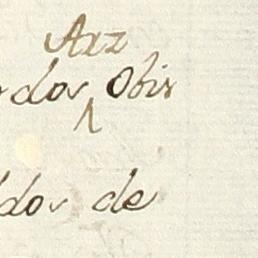 Arz
dor Obis
dor de